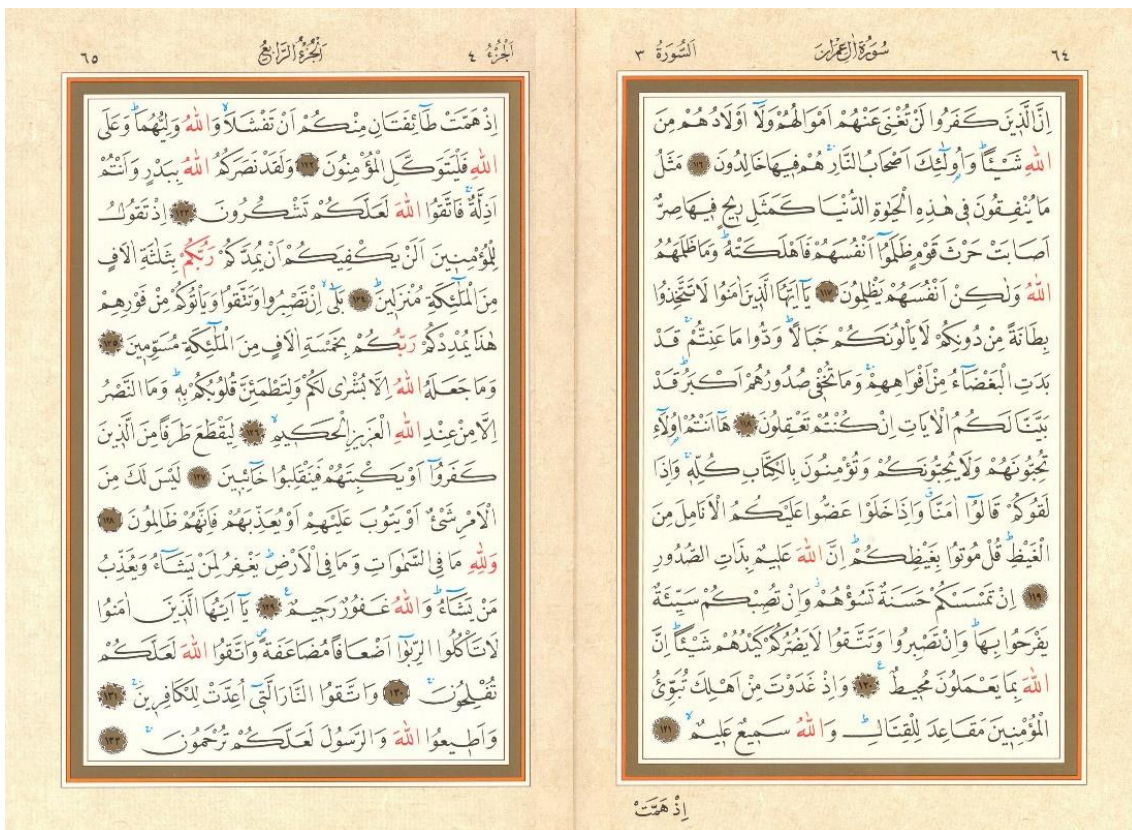 ٦٤ سُورَةُ اٰلِ عِمْرٰنَ اَلسُّورَةُ ٣
اِنَّ الَّذٖينَ كَفَرُوا لَنْ تُغْنِىَ عَنْهُمْ اَمْوَالُهُمْ وَلَٓا اَوْلَادُهُمْ مِنَ
اللّٰهِ شَيْـًٔاۜ وَاُولٰٓئِكَ اَصْحَابُ النَّارِۚ هُمْ فٖيهَا خَالِدُونَ ﴿١١٦﴾ مَثَلُ
مَا يُنْفِقُونَ فٖى هٰذِهِ الْحَيٰوةِ الدُّنْيَا كَمَثَلِ رٖيحٍ فٖيهَا صِرٌّ
اَصَابَتْ حَرْثَ قَوْمٍ ظَلَمُٓوا اَنْفُسَهُمْ فَاَهْلَكَتْهُۜ وَمَا ظَلَمَهُمُ
اللّٰهُ وَلٰكِنْ اَنْفُسَهُمْ يَظْلِمُونَ ﴿١١٧﴾ يَٓا اَيُّهَا الَّذٖينَ اٰمَنُوا لَا تَتَّخِذُوا
بِطَانَةً مِنْ دُونِكُمْ لَا يَأْلُونَكُمْ خَبَالًاۜ وَدُّوا مَا عَنِتُّمْۚ قَدْ
بَدَتِ الْبَغْضَٓاءُ مِنْ اَفْوَاهِهِمْۚ وَمَا تُخْفٖى صُدُورُهُمْ اَكْبَرُۜ قَدْ
بَيَّنَّا لَكُمُ الْاٰيَاتِ اِنْ كُنْتُمْ تَعْقِلُونَ ﴿١١٨﴾ هَٓا اَنْتُمْ اُولَٓاءِ
تُحِبُّونَهُمْ وَلَا يُحِبُّونَكُمْ وَتُؤْمِنُونَ بِالْكِتَابِ كُلِّهٖۚ وَاِذَا
لَقُوكُمْ قَالُٓوا اٰمَنَّاۗ وَاِذَا خَلَوْا عَضُّوا عَلَيْكُمُ الْاَنَامِلَ مِنَ
الْغَيْظِۜ قُلْ مُوتُوا بِغَيْظِكُمْۜ اِنَّ اللّٰهَ عَلٖيمٌ بِذَاتِ الصُّدُورِ
﴿١١٩﴾ اِنْ تَمْسَسْكُمْ حَسَنَةٌ تَسُؤْهُمْۘ وَاِنْ تُصِبْكُمْ سَيِّئَةٌ
يَفْرَحُوا بِهَاۜ وَاِنْ تَصْبِرُوا وَتَتَّقُوا لَا يَضُرُّكُمْ كَيْدُهُمْ شَيْـًٔاۜ اِنَّ
اللّٰهَ بِمَا يَعْمَلُونَ مُحٖيطٌ ﴿١٢٠﴾ وَاِذْ غَدَوْتَ مِنْ اَهْلِكَ تُبَوِّئُ
الْمُؤْمِنٖينَ مَقَاعِدَ لِلْقِتَالِۜ وَاللّٰهُ سَمٖيعٌ عَلٖيمٌۙ ﴿١٢١﴾
اِذْ هَمَّتْ
اَلْجُزْءُ ٤ اَلْجُزْءُ الرَّابِعُ ٦٥
اِذْ هَمَّتْ طَٓائِفَتَانِ مِنْكُمْ اَنْ تَفْشَلَاۙ وَاللّٰهُ وَلِيُّهُمَاۜ وَعَلَى
اللّٰهِ فَلْيَتَوَكَّلِ الْمُؤْمِنُونَ ﴿١٢٢﴾ وَلَقَدْ نَصَرَكُمُ اللّٰهُ بِبَدْرٍ وَاَنْتُمْ
اَذِلَّةٌۚ فَاتَّقُوا اللّٰهَ لَعَلَّكُمْ تَشْكُرُونَ ﴿١٢٣﴾ اِذْ تَقُولُ
لِلْمُؤْمِنٖينَ اَلَنْ يَكْفِيَكُمْ اَنْ يُمِدَّكُمْ رَبُّكُمْ بِثَلٰثَةِ اٰلَافٍ
مِنَ الْمَلٰٓئِكَةِ مُنْزَلٖينَۜ ﴿١٢٤﴾ بَلٰٓىۙ اِنْ تَصْبِرُوا وَتَتَّقُوا وَيَأْتُوكُمْ مِنْ فَوْرِهِمْ
هٰذَا يُمْدِدْكُمْ رَبُّكُمْ بِخَمْسَةِ اٰلَافٍ مِنَ الْمَلٰٓئِكَةِ مُسَوِّمٖينَ ﴿١٢٥﴾
وَمَا جَعَلَهُ اللّٰهُ اِلَّا بُشْرٰى لَكُمْ وَلِتَطْمَئِنَّ قُلُوبُكُمْ بِهٖۜ وَمَا النَّصْرُ
اِلَّا مِنْ عِنْدِ اللّٰهِ الْعَزٖيزِ الْحَكٖيمِۙ ﴿١٢٦﴾ لِيَقْطَعَ طَرَفًا مِنَ الَّذٖينَ
كَفَرُٓوا اَوْ يَكْبِتَهُمْ فَيَنْقَلِبُوا خَٓائِبٖينَ ﴿١٢٧﴾ لَيْسَ لَكَ مِنَ
الْاَمْرِ شَيْءٌ اَوْ يَتُوبَ عَلَيْهِمْ اَوْ يُعَذِّبَهُمْ فَاِنَّهُمْ ظَالِمُونَ ﴿١٢٨﴾
وَلِلّٰهِ مَا فِى السَّمٰوَاتِ وَمَا فِى الْاَرْضِۜ يَغْفِرُ لِمَنْ يَشَٓاءُ وَيُعَذِّبُ
مَنْ يَشَٓاءُۜ وَاللّٰهُ غَفُورٌ رَحٖيمٌ ﴿١٢٩﴾ يَٓا اَيُّهَا الَّذٖينَ اٰمَنُوا
لَا تَأْكُلُوا الرِّبٰٓوا اَضْعَافًا مُضَاعَفَةًۖ وَاتَّقُوا اللّٰهَ لَعَلَّكُمْ
تُفْلِحُونَۚ ﴿١٣٠﴾ وَاتَّقُوا النَّارَ الَّتٖٓى اُعِدَّتْ لِلْكَافِرٖينَۚ ﴿١٣١﴾
وَاَطٖيعُوا اللّٰهَ وَالرَّسُولَ لَعَلَّكُمْ تُرْحَمُونَۚ ﴿١٣٢﴾